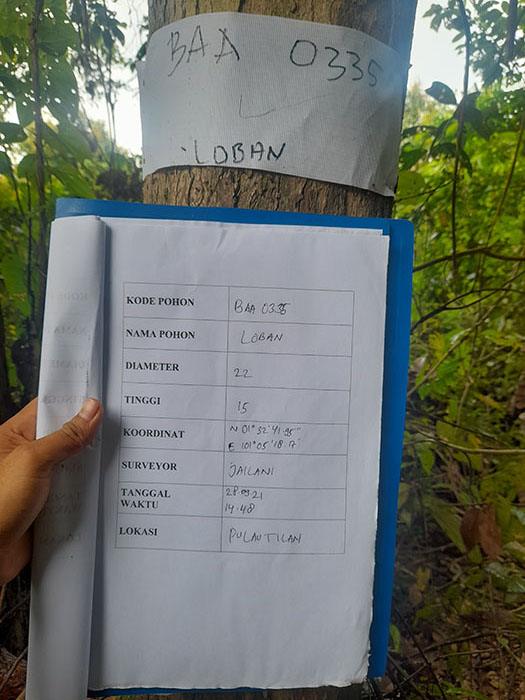 BAA 0335
LOBAN
KODE POHON BAA 0335
NAMA POHON LOBAN
DIAMETER 22
TINGGI 15
KOORDINAT N 01°32'41.95"
E 101°05'18.7"
SURVEYOR JAILANI
TANGGAL 28.09.21
WAKTU 14.48
LOKASI PULAU TILAN